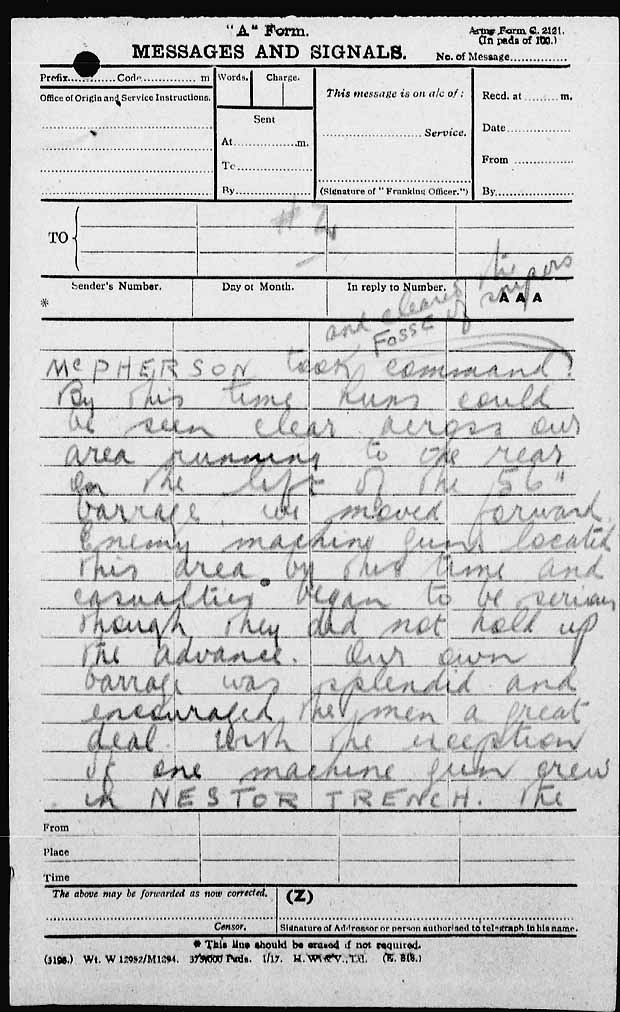 "A" Form.
Army Form C. 2121.
(In pads of 100.)
MESSAGES AND SIGNALS.
No. of Message
Prefix Code m
Words. Charge.
This message is on a/c of :
Recd. at m.
Office of Origin and Service Instructions.
Sent
At m.
Service.
Date
To
From
By
(Signature of "Franking Officer.")
By
TO
Sender's Number.
Day of Month.
In reply to Number.
* AAA
and cleared the
Fosse of snipers
McPHERSON took command.
By this time huns could
be seen clear across our
area running to the rear
on the left of the 56"
barrage we moved forward.
Enemy machine guns located
this area by this time and
casualties began to be serious
though they did not hold up
the advance. Our own
barrage was splendid and
encouraged the men a great
deal. With the exception
of one machine gun crew
in NESTOR TRENCH. The
From
Place
Time
The above may be forwarded as now corrected.
(Z)
Censor.
Signature of Addressor or person authorised to telegraph in his name.
* This line should be erased if not required.
(3198.) Wt. W 12952/M1294. Pads. 1/17. (E. 818.)